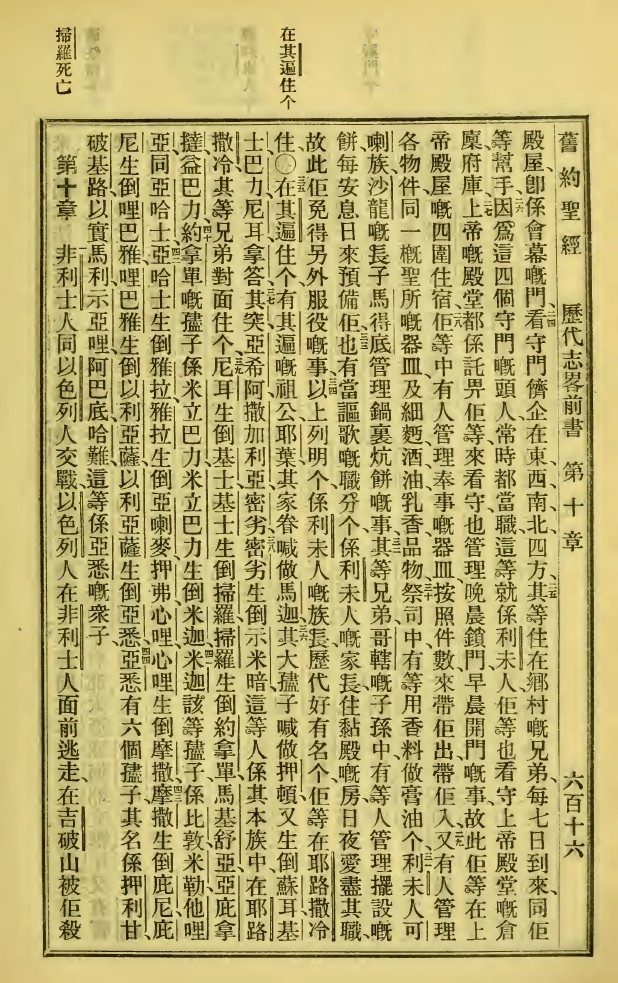 舊約聖經 歷代志畧前書 第十章 六百十六
殿屋、卽係會幕嘅門、二四看守門儕企在東西南北四方、二五其等住在鄉村嘅兄弟、每七日到來、同佢
等幫手、二六因爲這四個守門嘅頭人、常時都當職、這等就係利未人、佢等也看守上帝殿堂嘅倉
廩府庫、二七上帝嘅殿堂、都係託畀佢等來看守、也管理晚晨鎖門、早晨開門嘅事、故此佢等在上
帝殿屋嘅四圍住宿、二八佢等中有人管理奉事嘅器皿、按照件數來帶佢出帶佢入、二九又有人管理
各物件、同一概聖所嘅器皿、及細麪酒油乳香品物、三十祭司中有等用香料做膏油个、三一利未人可
喇族沙龍嘅長子馬得底、管理鍋裏炕餅嘅事、三二其等兄弟哥轄嘅子孫中、有等人管理擺設嘅
餅、每安息日來預備佢、三三也有當謳歌嘅職分个、係利未人嘅家長、住黏殿嘅房、日夜愛盡其職、
故此佢免得另外服役嘅事、三四以上列明个、係利未人嘅族長、歷代好有名个、佢等在耶路撒冷
住、〇三五在其遍住个、有其遍嘅祖公耶葉、其家眷喊做馬迦、三六其大孻子喊做押頓、又生倒蘇耳基
士巴力尼耳拿答、三七其突亞希阿撒加利亞密劣、三八密劣生倒示米暗、這等人係其本族中在耶路
撒冷、其等兄弟對面住个、三九尼耳生倒基士、基士生倒掃羅、掃羅生倒約拿單馬基舒亞亞庇拿
撻益巴力、四十約拿單嘅孻子係米立巴力、米立巴力生倒米迦、四一米迦該等孻子、係比敦米勒他哩
亞同亞哈士、四二亞哈士生倒雅拉、雅拉生倒亞喇麥押弗心哩、心哩生倒摩撒、四三摩撒生倒庇尼庇
尼生倒哩巴雅、哩巴雅生倒以利亞薩、以利亞薩生倒亞悉、四四亞悉有六個孻子、其名係押利甘、
破基路以實馬利示亞哩阿巴底哈難、這等係亞悉嘅衆子、
第十章 非利士人同以色列人交戰、以色列人在非利士人面前逃走、在吉破山被佢殺
在其遍住个
掃羅死亡